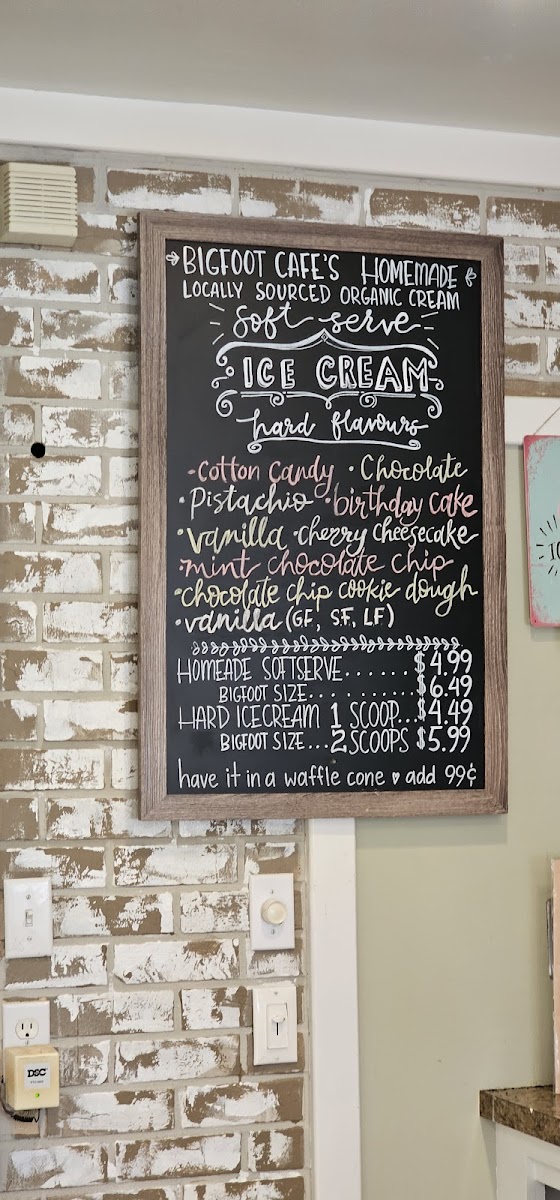 BIGFOOT CAFE'S HOMEMADE
LOCALLY SOURCED ORGANIC CREAM
soft serve
ICE CREAM
hard flavours
·cotton candy ·Chocolate
·Pistachio ·birthday cake
·vanilla ·cherry cheesecake
·mint chocolate chip
·chocolate chip cookie dough
·vanilla (GF, SF, LF)
HOMEADE SOFTSERVE......$4.99
BIGFOOT SIZE..........$6.49
HARD ICECREAM 1 SCOOP...$4.49
BIGFOOT SIZE...2 SCOOPS $5.99
have it in a waffle cone ♥ add 99¢
DSC